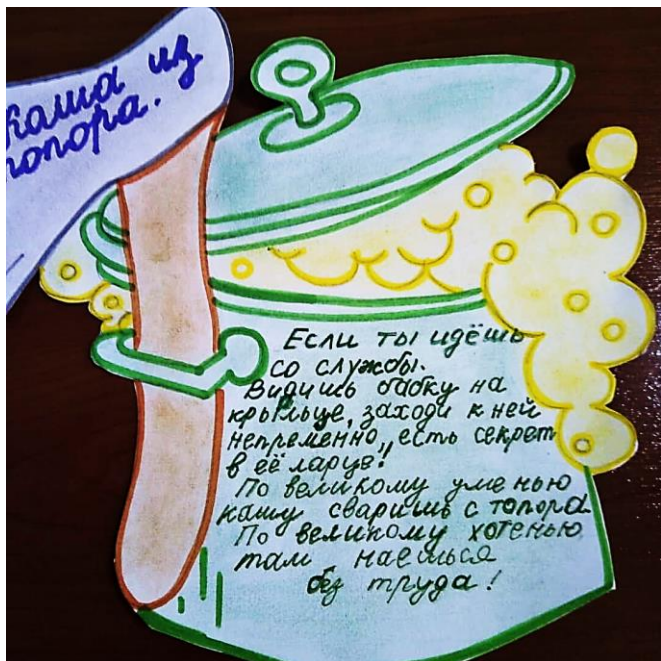 Каша из
топора.
Если ты идёшь
со службы.
Видишь бабку на
крыльце, заходи к ней
непременно, „есть секрет
в её ларце!"
По великому уменью
кашу сваришь с топора
По великому хотенью
там наешься
без труда!